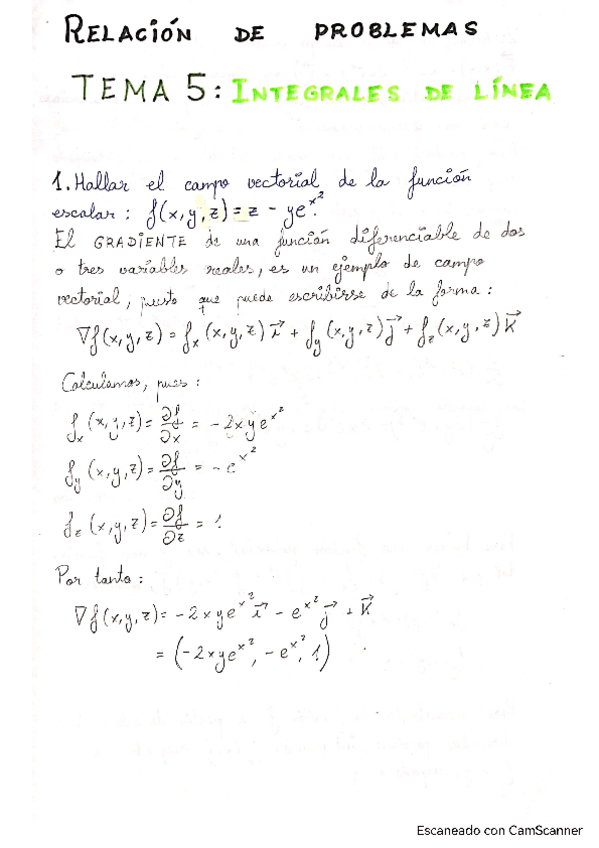 RELACIÓN DE PROBLEMAS
TEMA 5: INTEGRALES DE LÍNEA
1. Hallar el campo vectorial de la función
escalar: f(x,y,z) = z - ye^{x^2}.
El GRADIENTE de una función diferenciable de dos
o tres variables reales, es un ejemplo de campo
vectorial, puesto que puede escribirse de la forma:
∇f(x,y,z) = f_x (x,y,z) i⃗ + f_y (x,y,z) j⃗ + f_z (x,y,z) k⃗
Calculamos, pues:
f_x (x,y,z) = ∂f/∂x = -2xye^{x^2}
f_y (x,y,z) = ∂f/∂y = -e^{x^2}
f_z (x,y,z) = ∂f/∂z = 1
Por tanto:
∇f(x,y,z) = -2xye^{x^2} i⃗ - e^{x^2} j⃗ + k⃗
= (-2xye^{x^2}, -e^{x^2}, 1)
Escaneado con CamScanner